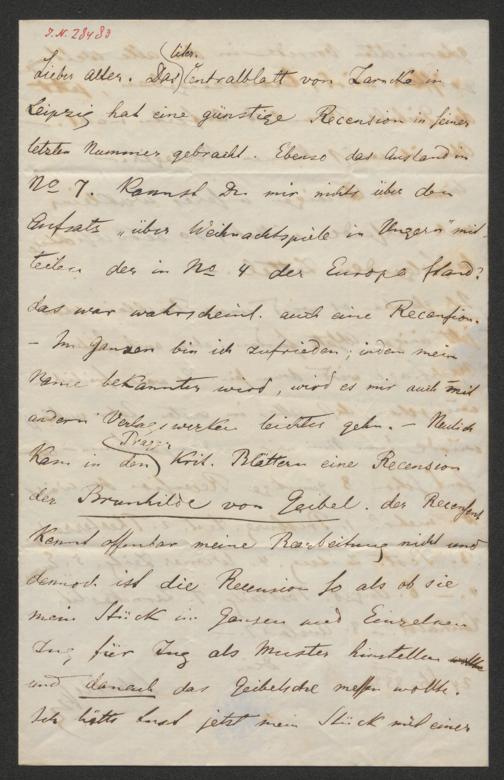 J.N. 28483
liter.
Lieber alter. Das Centralblatt von Zarncke in
Leipzig hat eine günstige Recension in seiner
letzten Nummer gebracht. Ebenso das Ausland in
No 7. Kannst Du mir nichts über den
Aufsatz „über Weihnachtspiele in Ungern" mit-
teilen der in No 4 der Europa stand?
das war wahrscheinl. auch eine Recension.
- Im Ganzen bin ich zufrieden; indem mein
Name bekannter wird, wird es mir auch mit
andern Verlagswerken leichter gehn. – Neulich
Prager
kam in den Krit. Blättern eine Recension
der Brunhilde von Geibel. der Recensent
kennt offenbar meine Bearbeitung nicht und
dennoch ist die Recension so als ob sie
mein Stück im Ganzen und Einzelnen
Zug für Zug als Muster hinstellen wollte
und danach das Geibelsche messen wollte.
Ich hätte Lust jetzt mein Stück mit einer